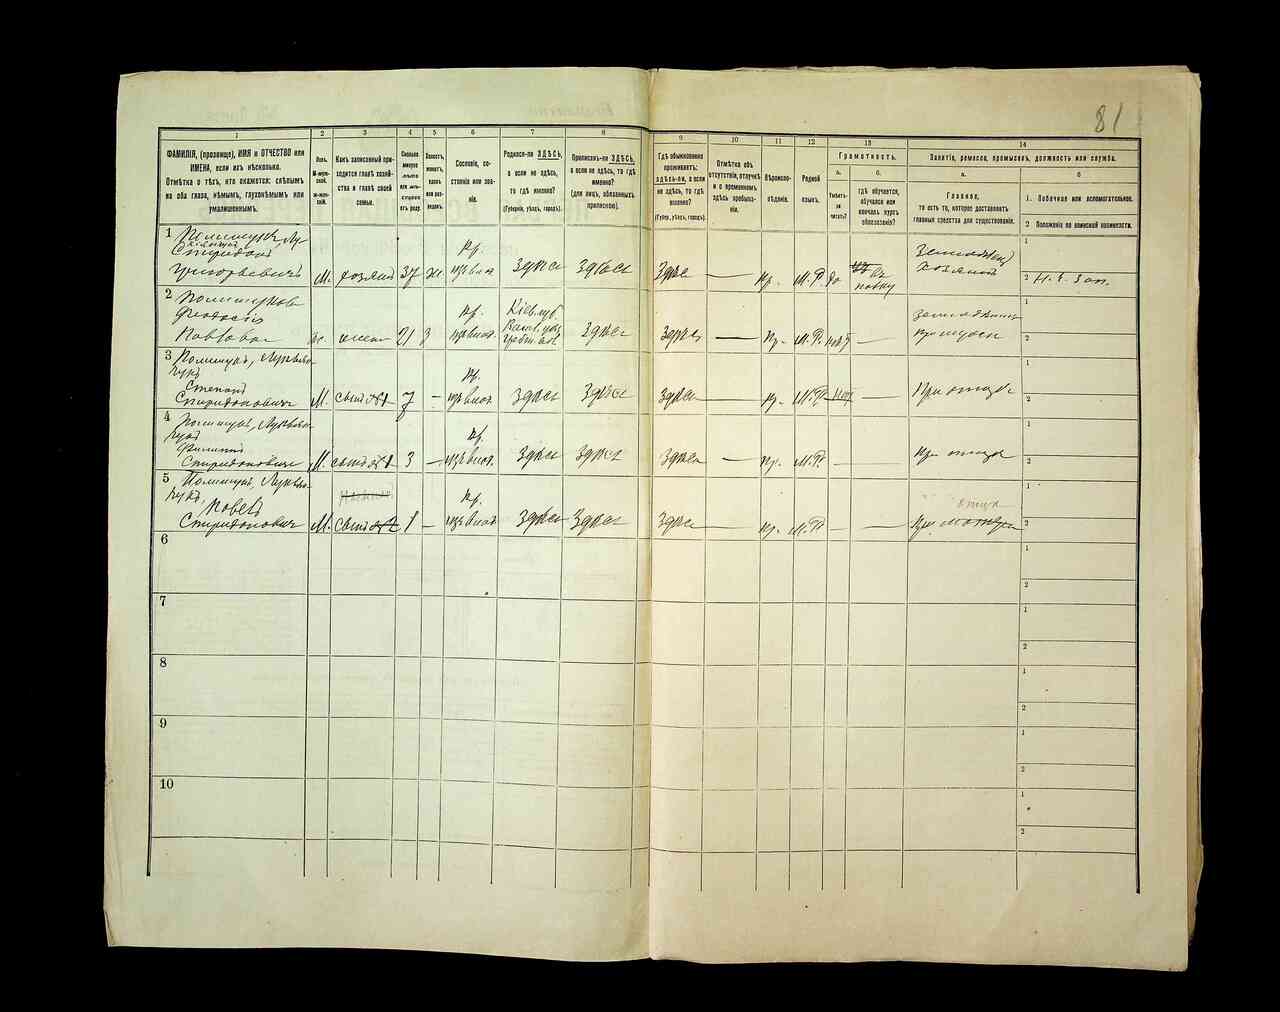 81
1
2
3
4
5
6
7
8
9
10
11
12
13
14
ФАМИЛІЯ, (прозвище), ИМЯ и ОТЧЕСТВО или
ИМЕНА, если ихъ нѣсколько.
Отмѣтка о тѣхъ, кто окажется: слѣпымъ
на оба глаза, нѣмымъ, глухонѣмымъ или
умалишеннымъ.
Полъ.
М-мужской.
Ж-женскій.
Какъ записанный при-
ходится главѣ хозяй-
ства и главѣ своей
семьи.
Сколько
минуло
лѣтъ
или мѣ-
сяцевъ
отъ роду.
Холостъ,
женатъ,
вдовъ
или раз-
веденъ.
Сословіе, со-
стояніе или зва-
ніе.
Родился-ли ЗДѢСЬ,
а если не здѣсь,
то гдѣ именно?
(Губернія, уѣздъ, городъ).
Приписанъ-ли ЗДѢСЬ,
а если не здѣсь, то гдѣ
именно?
(для лицъ, обязанныхъ
припискою).
Гдѣ обыкновенно
проживаетъ:
ЗДѢСЬ-ЛИ, а если
не здѣсь, то гдѣ
именно?
(Губер., уѣздъ, городъ).
Отмѣтка объ
отсутствіи, отлучкѣ
и о временномъ
здѣсь пребыва-
ніи.
Вѣроиспо-
вѣданіе.
Родной
языкъ.
Грамотность.
а.
Умѣетъ-
ли
читать?
б.
гдѣ обучается,
обучался или
кончилъ курсъ
образованія?
Занятіе, ремесло, промыселъ, должность или служба.
а.
Главное,
то есть то, которое доставляетъ
главныя средства для существованія.
б
1. Побочное или вспомогательное.
2 Положеніе по воинской повинности.
1
Спиридонъ
Григорьевичъ
М.
хозяинъ
37
ж.
кр.
здѣсь
здѣсь
здѣсь
—
пр.
М.Р.
да
Земледѣлецъ
хозяинъ
1
2
2
Полищукова
Феодосія
Павлова
ж.
жена
21
з
кр.
Кіев. губ.
здѣсь
здѣсь
—
пр.
М.Р.
нѣтъ
—
1
2
3
Полищукъ, Лукьян-
чукъ
Степанъ
Спиридоновичъ
М.
сынъ
7
—
кр.
здѣсь
здѣсь
здѣсь
—
пр.
М.Р.
нѣтъ
—
При отцѣ
1
2
4
Полищукъ, Лукьян-
чукъ
Филиппъ
Спиридоновичъ
М.
сынъ
3
—
кр.
здѣсь
здѣсь
здѣсь
—
пр.
М.Р.
—
—
При отцѣ
1
2
5
Полищукъ, Лукьян-
чукъ,
Павелъ
Спиридоновичъ
М.
сынъ
1
—
кр.
здѣсь
здѣсь
здѣсь
пр.
М.Р.
—
—
отцѣ
При матери
1
2
6
1
2
7
1
2
8
1
2
9
1
2
10
1
2